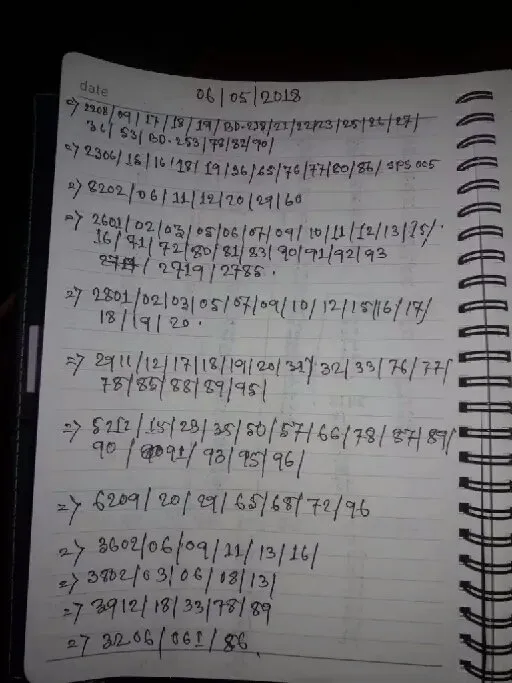 date 06/05/2018
=> 2208/09/17/18/19/BD-238/21/22/23/25/26/27/
36/53/BD-253/78/82/90/
=> 2306/15/16/18/19/26/65/76/77/80/86/ SPS 005
=> 8202/06/11/12/20/29/60
=> 2601/02/03/05/06/07/09/10/11/12/13/15/
16/71/72/80/81/83/90/91/92/93
/ 2719/2785.
=> 2801/02/03/05/07/09/10/12/15/16/17/
18/19/20.
=> 2911/12/17/18/19/20/31/32/33/76/77/
78/85/88/89/95/
=> 5212/15/23/35/50/57/66/78/87/89/
90/91/93/95/96/
=> 6209/20/29/65/68/72/96
=> 3602/06/09/11/13/16/
=> 3802/03/06/08/13/
=> 3912/18/33/78/89
=> 3206/061/86.